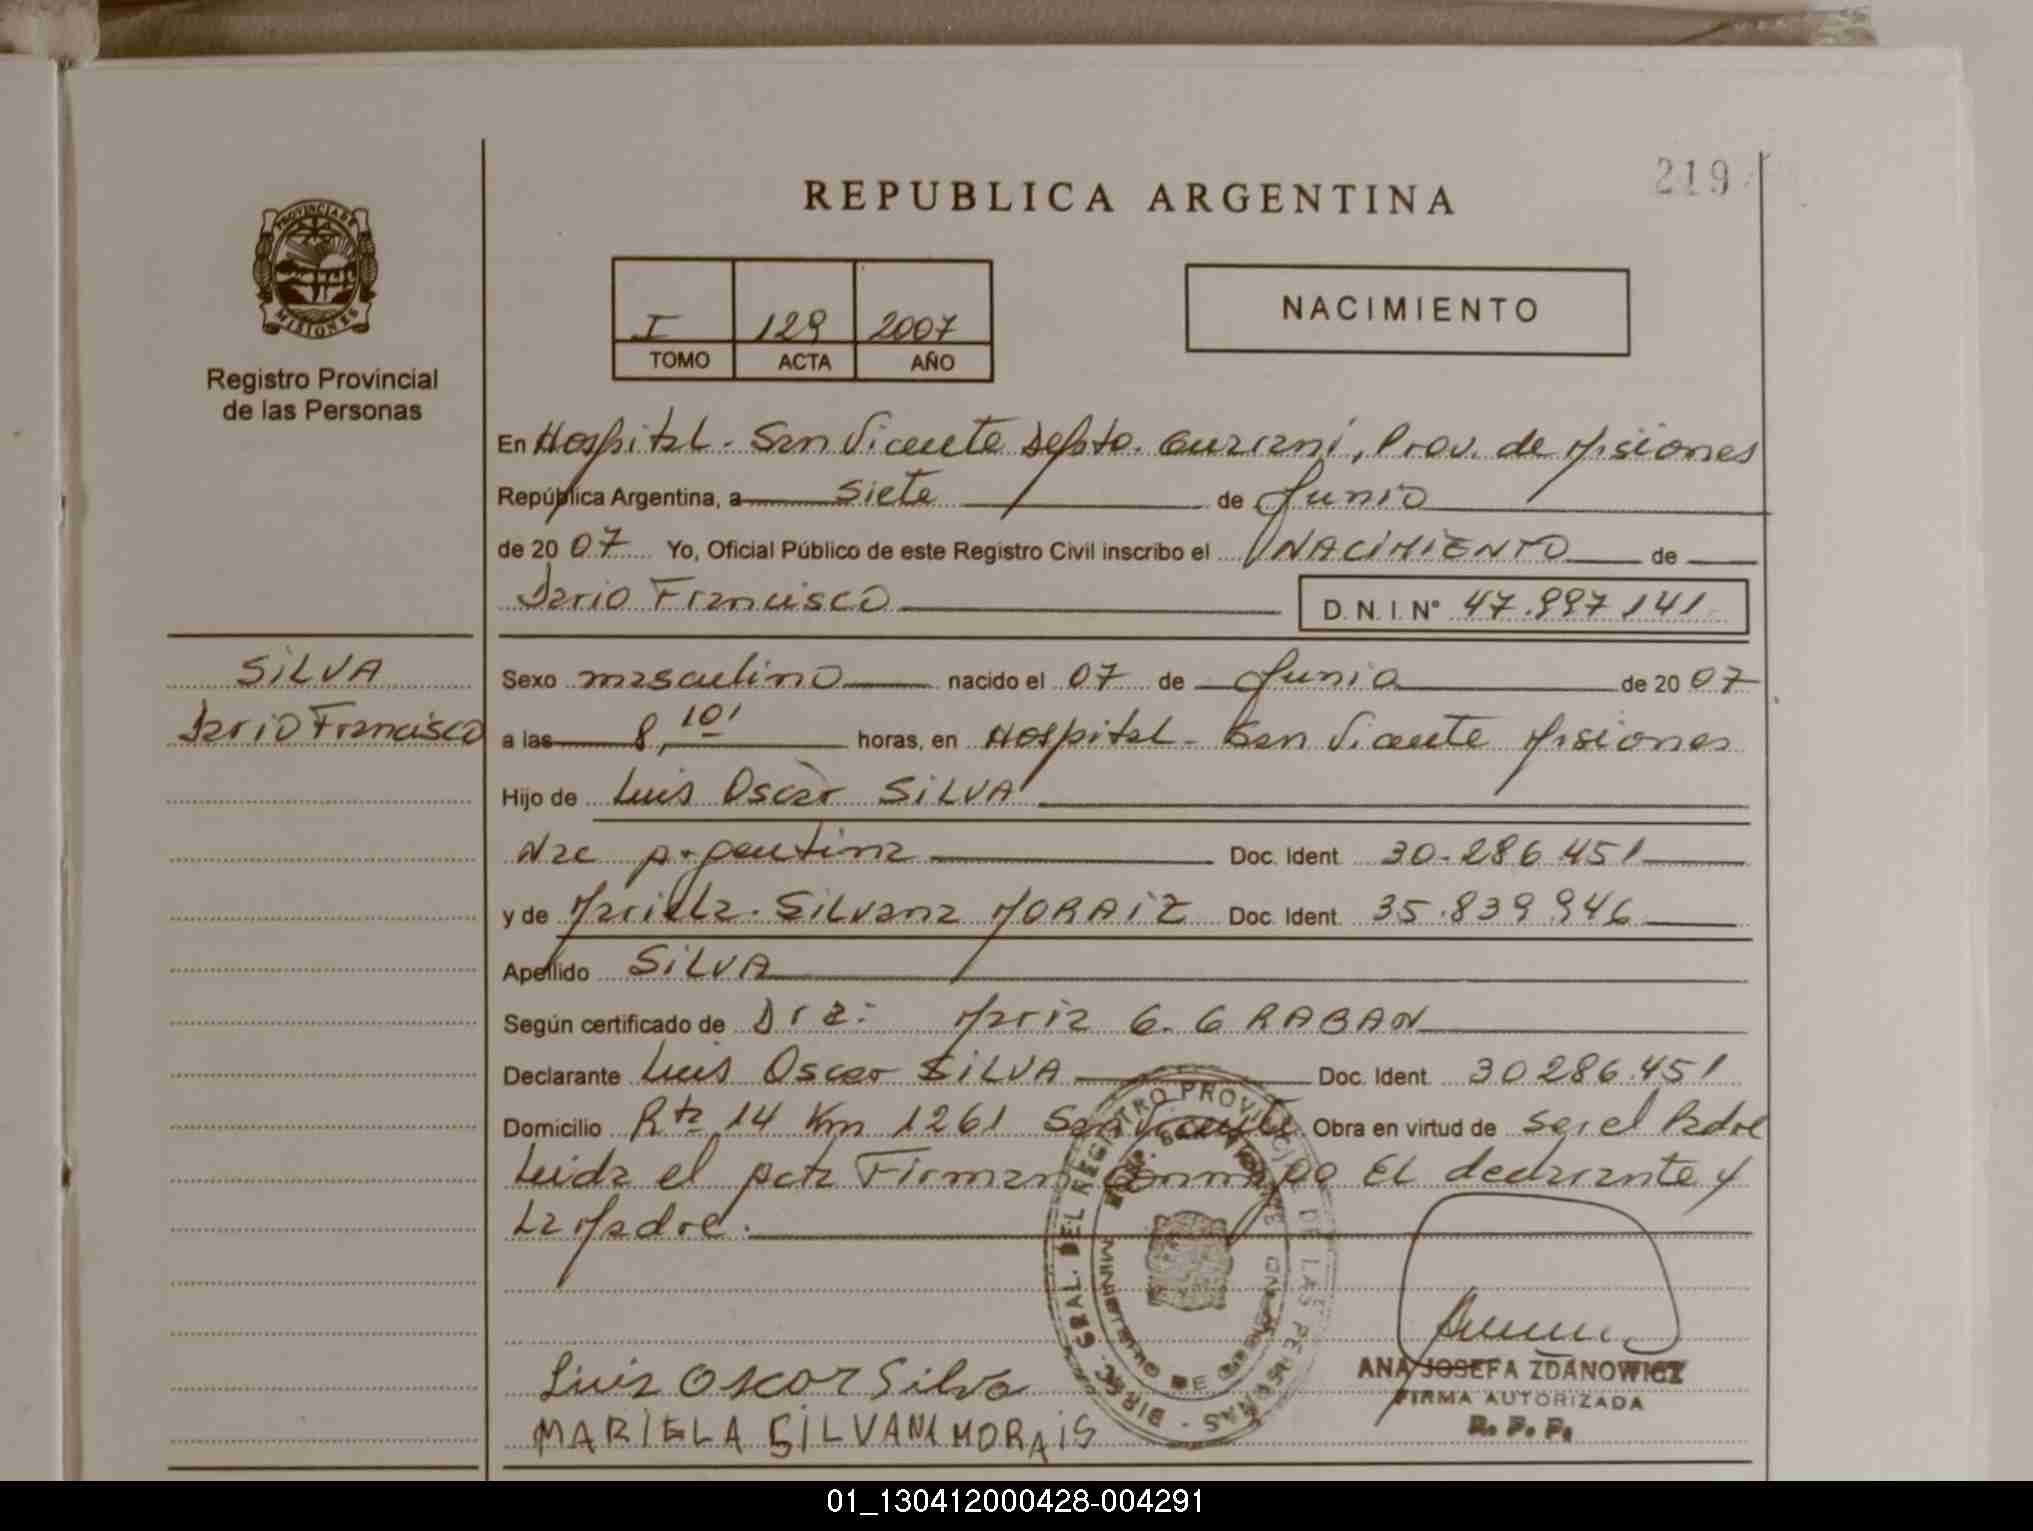 219
REPUBLICA ARGENTINA
PROVINCIA DE
MISIONES
Registro Provincial
de las Personas
I 129 2007
TOMO ACTA AÑO
NACIMIENTO
En Hospital - San Vicente Depto. Guarani, Prov. de Misiones
República Argentina, a siete de Junio
de 2007 Yo, Oficial Público de este Registro Civil inscribo el NACIMIENTO de
Dario Francisco D. N. I. N° 47.997141
SILVA
Dario Francisco
Sexo masculino nacido el 07 de Junio de 2007
a las 8,10' horas, en Hospital - San Vicente Misiones
Hijo de Luis Oscar SILVA
Nac Argentina Doc. Ident. 30.286.451
y de Mariela - Silvana MORAIZ Doc. Ident. 35.839.946
Apellido SILVA
Según certificado de Dra: Maria G. GRABAN
Declarante Luis Oscar SILVA Doc. Ident. 30286.451
Domicilio Rta 14 Km 1261 San Vicente Obra en virtud de ser el Padre
Leida el Acta Firman conmigo El declarante y
La Madre.
DIREC. GRAL. DEL REGISTRO PROVINCIAL DE LAS PERSONAS
MINISTERIO DE GOBIERNO
Luis Oscar Silva
MARIELA SILVANA MORAIS
ANA JOSEFA ZDANOWICZ
FIRMA AUTORIZADA
R. P. P.
01_130412000428-004291